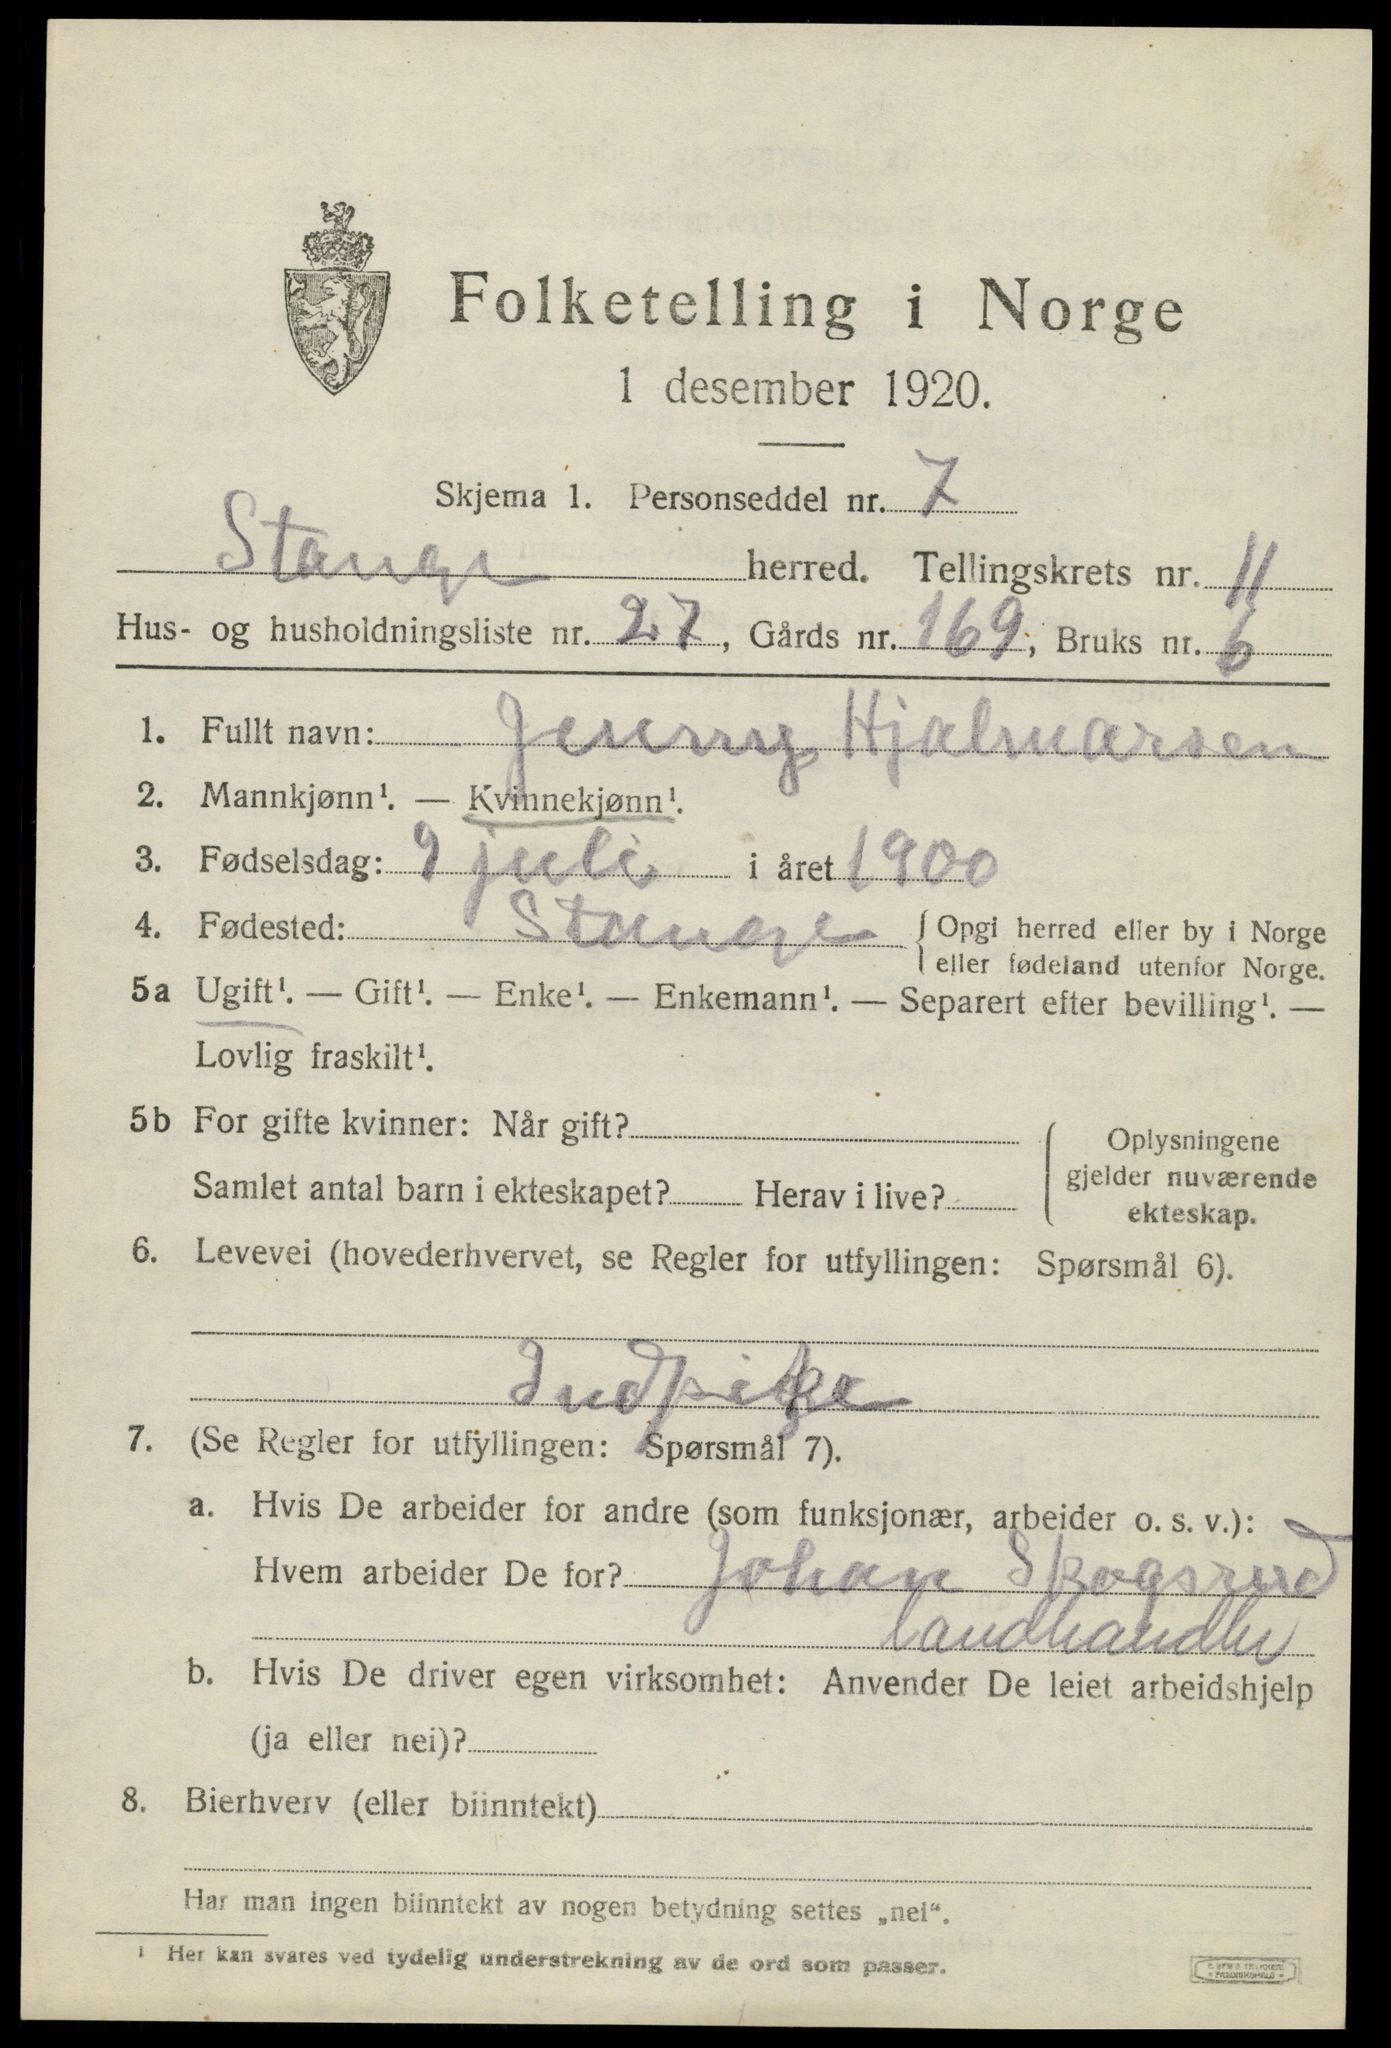 Folketelling i Norge
1 desember 1920.
Skjema 1. Personseddel nr. 7
Stange herred. Tellingskrets nr. 11
Hus- og husholdningsliste nr. 27, Gårds nr. 169, Bruks nr. 6
1. Fullt navn: Jenny Hjalmarsen
2. Mannkjønn¹. — Kvinnekjønn¹.
3. Fødselsdag: 9 juli i året 1900
4. Fødested: Stange { Opgi herred eller by i Norge
eller fødeland utenfor Norge.
5a Ugift¹. — Gift¹. — Enke¹. — Enkemann¹. — Separert efter bevilling¹. —
Lovlig fraskilt¹.
5b For gifte kvinner: Når gift? { Oplysningene
gjelder nuværende
Samlet antal barn i ekteskapet? Herav i live? ekteskap.
6. Levevei (hovederhvervet, se Regler for utfyllingen: Spørsmål 6).
Indpike
7. (Se Regler for utfyllingen: Spørsmål 7).
a. Hvis De arbeider for andre (som funksjonær, arbeider o. s. v.):
Hvem arbeider De for? Johan Skogsrud
landhandler
b. Hvis De driver egen virksomhet: Anvender De leiet arbeidshjelp
(ja eller nei)?
8. Bierhverv (eller biinntekt)
Har man ingen biinntekt av nogen betydning settes „nei“.
¹ Her kan svares ved tydelig understrekning av de ord som passer.